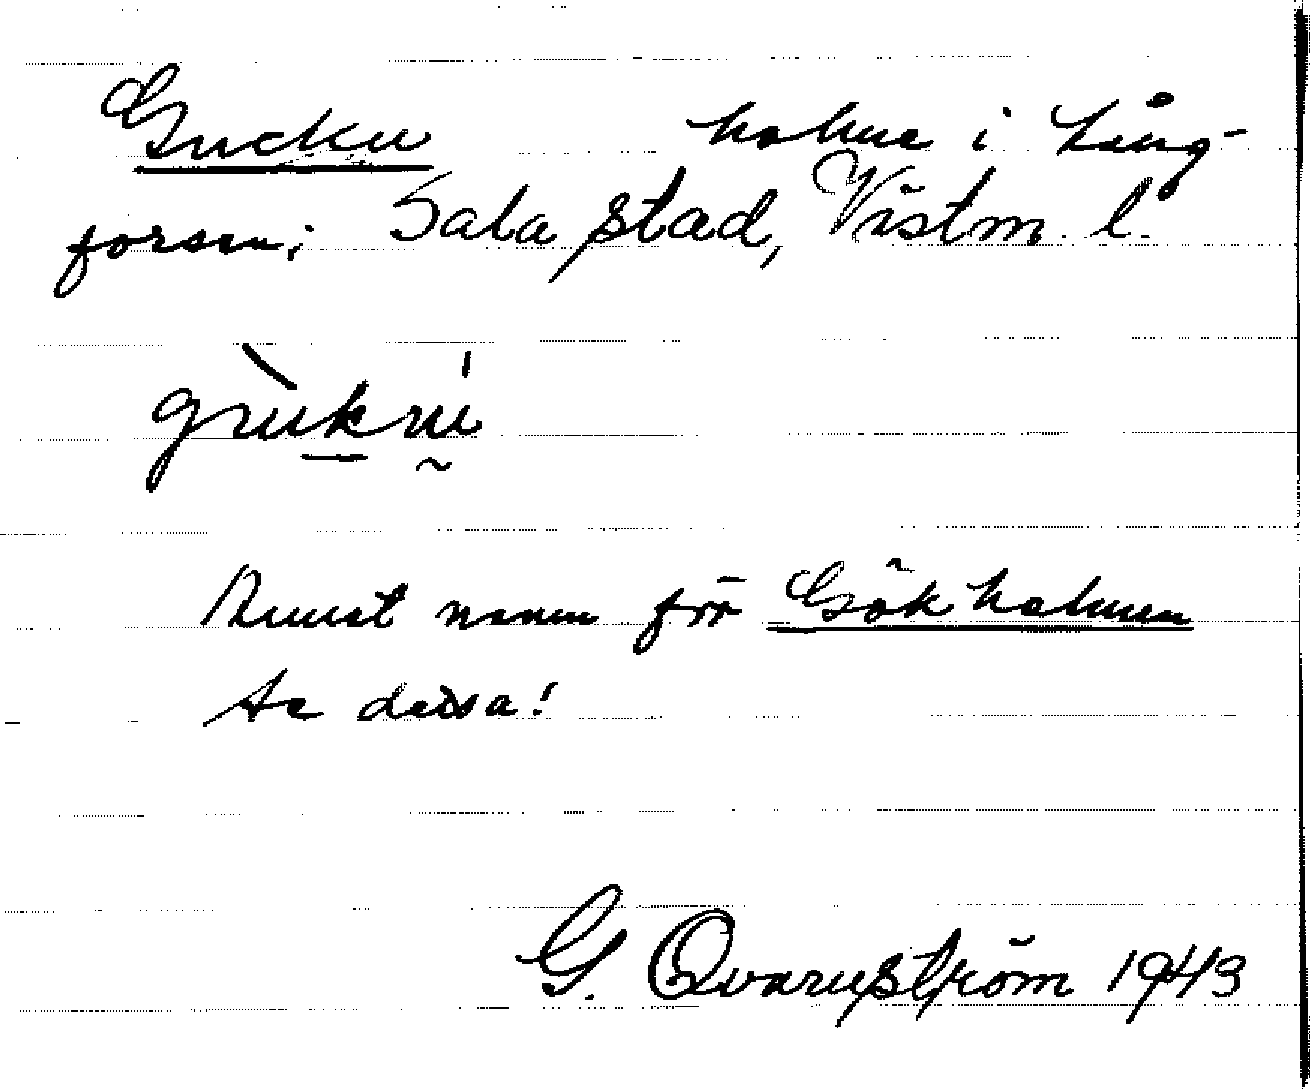 Gucku holme i Lång-
forsen; Sala stad, Västm. l.
grùkru̍
Annat namn för Gökholmen
Se dessa!
G. Qvarnström 1943